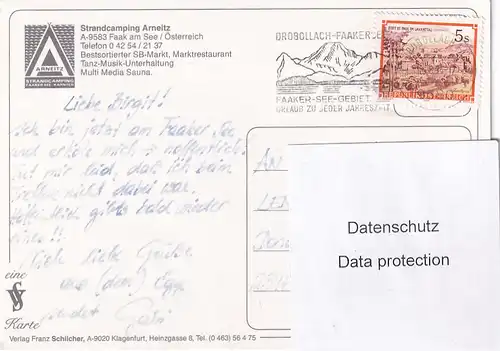 Strandcamping Arneitz
A-9583 Faak am See / Österreich
Telefon 0 42 54 / 21 37
Bestsortierter SB-Markt, Marktrestaurant
Tanz-Musik-Unterhaltung
Multi Media Sauna.
ARNEITZ
STRANDCAMPING
DROBOLLACH-FAAKERSEE
FAAKER-SEE-GEBIET
URLAUB ZU JEDER JAHRESZEIT
5s
STIFT ST. PAUL IM LAVANTTAL
REPUBLIK ÖSTERREICH
Liebe Birgit!
Ich bin jetzt am Faaker See
und erhole mich - hoffentlich.
Tut mir leid, daß ich beim
Treffen nicht dabei war.
Hoffentlich gibts bald wieder
eines!!
Viele liebe Grüße
aus (dem)
sendet
AN
Datenschutz
Data protection
eine
Karte
Verlag Franz Schilcher, A-9020 Klagenfurt, Heinzgasse 8, Tel. (0 463) 56 4 75